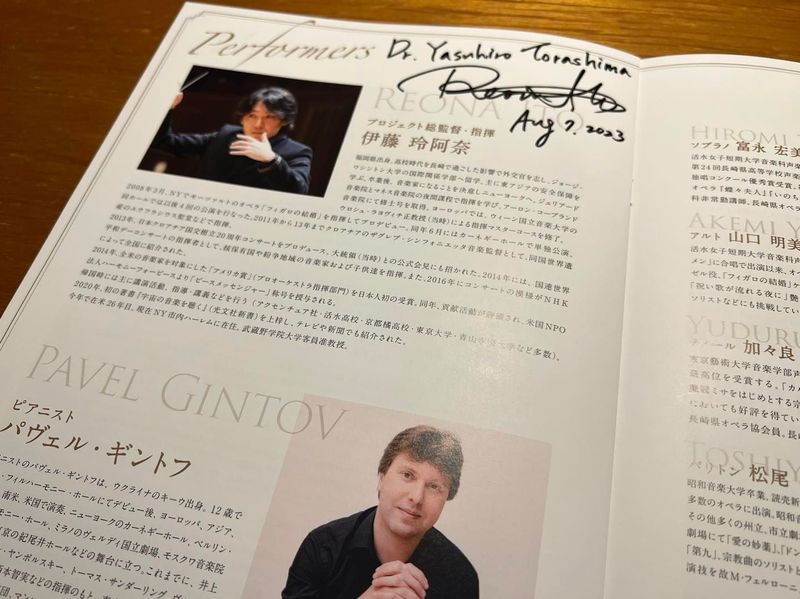 Performers
Dr. Yasuhiro Torashima
Aug 7. 2023
REONA ITO
プロジェクト総監督・指揮
伊藤 玲阿奈
福岡県出身。高校時代を長崎で過ごした影響で外交官を志し、ジョージ・
ワシントン大学の国際関係学部へ留学、主に東アジアの安全保障を
学ぶ。卒業後、音楽家になることを決意しニューヨークへ、ジュリアード
音楽院とマネス音楽院の夜間課程で指揮を学び、アーロン・コープランド
音楽院にて修士号を取得。ヨーロッパでは、ウィーン国立音楽大学の
ウロシュ・ラヨヴィチ正教授(当時)による指揮マスターコースを修了。
2008年3月、NYでモーツァルトのオペラ「フィガロの結婚」を指揮してプロデビュー。同年6月にはカーネギーホールで単独公演、
同ホールでは以後4回の公演を行なった。2011年から13年までクロアチアのザグレブ・シンフォニエッタ音楽監督として、同国世界遺
産のエウフラシウス聖堂などで指揮。
2013年、日本クロアチア国交樹立20周年コンサートをプロデュース、大統領(当時)との公式会見にも招かれた。2014年には、国連世界
平和デーコンサートの指揮者として、核保有国や紛争地域の音楽家および子供達を指揮。また、2016年にコンサートの模様がNHK
によって全国に紹介された。
2014年、全米の音楽家を対象にした「アメリカ賞」(プロオーケストラ指揮部門)を日本人初の受賞。同年、貢献活動が評価され、米国NPO
法人ハーモニーフォーピースより「ピースメッセンジャー」称号を授与される。
帰国時には主に講演活動、指導・講義などを行う(アクセンチュア社・活水高校・京都橘高校・東京大学・青山学院大学など多数)。
2020年、初の著書「宇宙の音楽を聴く」(光文社新書)を上梓し、テレビや新聞でも紹介された。
今年で在米26年目。現在NY市内ハーレムに在住。武蔵野学院大学客員准教授。
PAVEL GINTOV
ピアニスト
パヴェル・ギントフ
ニストのパヴェル・ギントフは、ウクライナのキーウ出身。12歳で
・フィルハーモニー・ホールにてデビュー後、ヨーロッパ、アジア、
南米、米国で演奏、ニューヨークのカーネギーホール、ベルリン・
モニー・ホール、ミラノのヴェルディ国立劇場、モスクワ音楽院
京の紀尾井ホールなどの舞台に立つ。これまでに、井上
・ヤンポルスキー、トーマス・サンダーリング、
本智実などの指揮のもと、
HIROMI
ソプラノ 富永 宏美
活水女子短期大学音楽科声楽
第24回長崎県高等学校声楽
独唱コンクール優秀賞受賞、
オペラ「蝶々夫人」「いのち
科非常勤講師。長崎県オペラ
AKEMI
アルト 山口 明美
活水女子短期大学音楽科声楽
メン」に合唱で出演以来、オ
ゼル役、「フィガロの結婚」ケ
「祝い歌が流れる夜に」艶
ソリストなどにも挑戦してい
YUDURU
テノール 加々良
東京藝術大学音楽学部声
最高位を受賞する。「カル
冠ミサをはじめとする宗
においても好評を得てい
長崎県オペラ協会会員。長
TOSHIY
バリトン 松尾
昭和音楽大学卒業。読売新
多数のオペラに出演。昭和音
その他多くの州立、市立劇
劇場にて「愛の妙薬」、「ドン
「第九」、宗教曲のソリストと
演技を故M・フェルローニ